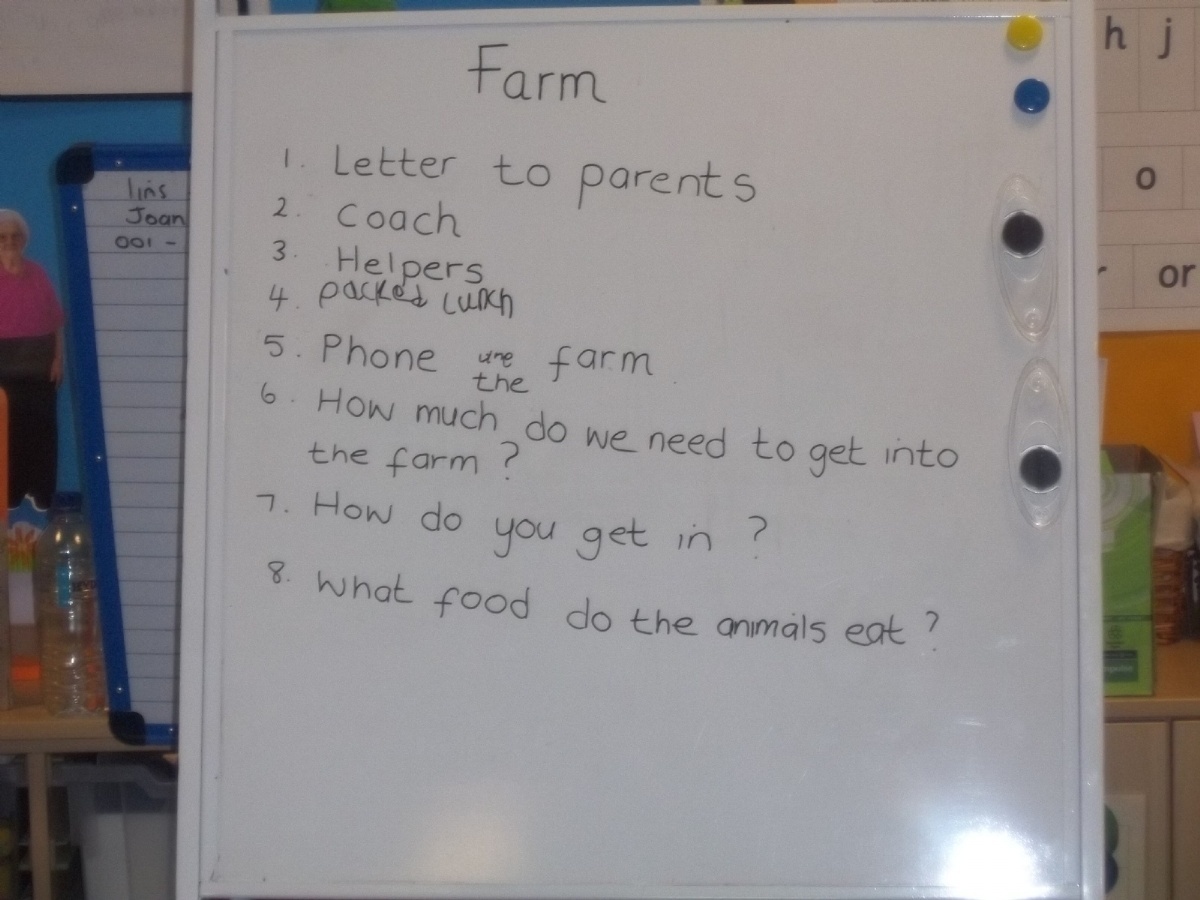 Farm
1. Letter to parents
2. Coach
3. Helpers
4. packed lunch
5. Phone the farm
6. How much do we need to get into
the farm ?
7. How do you get in ?
8. What food do the animals eat ?
Joan
001 -
h j
o
r or